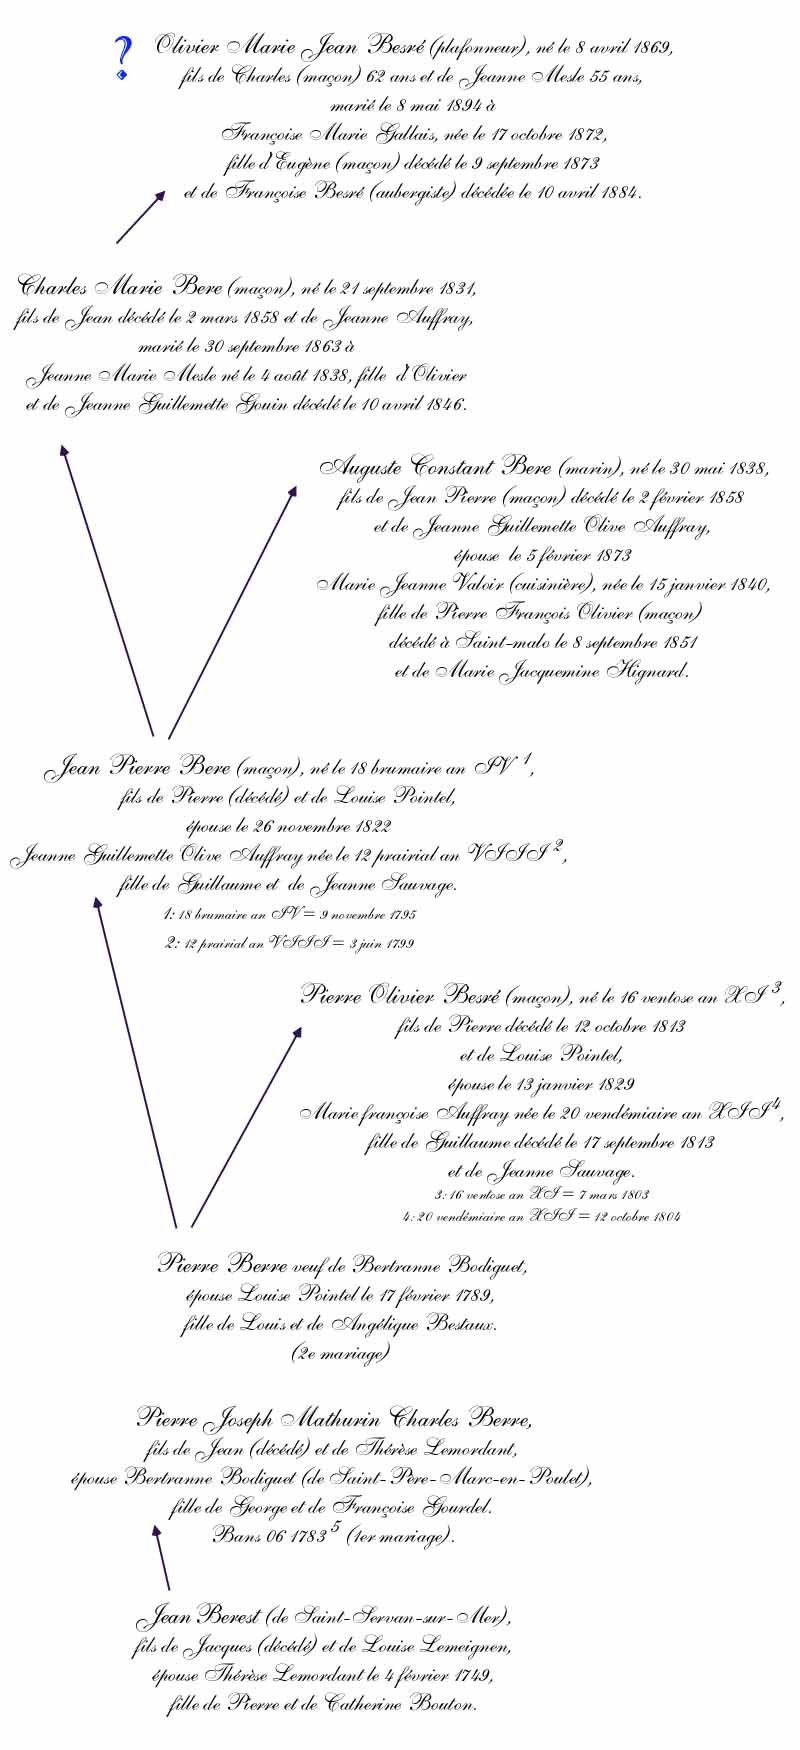 ? Olivier Marie Jean Besré (plafonneur), né le 8 avril 1869,
fils de Charles (maçon) 62 ans et de Jeanne Mesle 55 ans,
marié le 8 mai 1894 à
Françoise Marie Gallais, née le 17 octobre 1872,
fille d'Eugène (maçon) décédé le 9 septembre 1873
et de Françoise Besré (aubergiste) décédée le 10 avril 1884.
Charles Marie Bere (maçon), né le 21 septembre 1831,
fils de Jean décédé le 2 mars 1858 et de Jeanne Auffray,
marié le 30 septembre 1863 à
Jeanne Marie Mesle né le 4 août 1838, fille d'Olivier
et de Jeanne Guillemette Gouin décédé le 10 avril 1846.
Auguste Constant Bere (marin), né le 30 mai 1838,
fils de Jean Pierre (maçon) décédé le 2 février 1858
et de Jeanne Guillemette Olive Auffray,
épouse le 5 février 1873
Marie Jeanne Valoir (cuisinière), née le 15 janvier 1840,
fille de Pierre François Olivier (maçon)
décédé à Saint-malo le 8 septembre 1851
et de Marie Jacquemine Hignard.
Jean Pierre Bere (maçon), né le 18 brumaire an IV 1,
fils de Pierre (décédé) et de Louise Pointel,
épouse le 26 novembre 1822
Jeanne Guillemette Olive Auffray née le 12 prairial an VIII 2,
fille de Guillaume et de Jeanne Sauvage.
1: 18 brumaire an IV = 9 novembre 1795
2: 12 prairial an VIII = 3 juin 1799
Pierre Olivier Besré (maçon), né le 16 ventose an XI 3,
fils de Pierre décédé le 12 octobre 1813
et de Louise Pointel,
épouse le 13 janvier 1829
Marie françoise Auffray née le 20 vendémiaire an XII 4,
fille de Guillaume décédé le 17 septembre 1813
et de Jeanne Sauvage.
3: 16 ventose an XI = 7 mars 1803
4: 20 vendémiaire an XII = 12 octobre 1804
Pierre Berre veuf de Bertranne Bodiguet,
épouse Louise Pointel le 17 février 1789,
fille de Louis et de Angélique Bestaux.
(2e mariage)
Pierre Joseph Mathurin Charles Berre,
fils de Jean (décédé) et de Thérèse Lemordant,
épouse Bertranne Bodiguet (de Saint-Père-Marc-en-Poulet),
fille de George et de Françoise Gourdel.
Bans 06 1783 5 (1er mariage).
Jean Berest (de Saint-Servan-sur-Mer),
fils de Jacques (décédé) et de Louise Lemeignen,
épouse Thérèse Lemordant le 4 février 1749,
fille de Pierre et de Catherine Bouton.